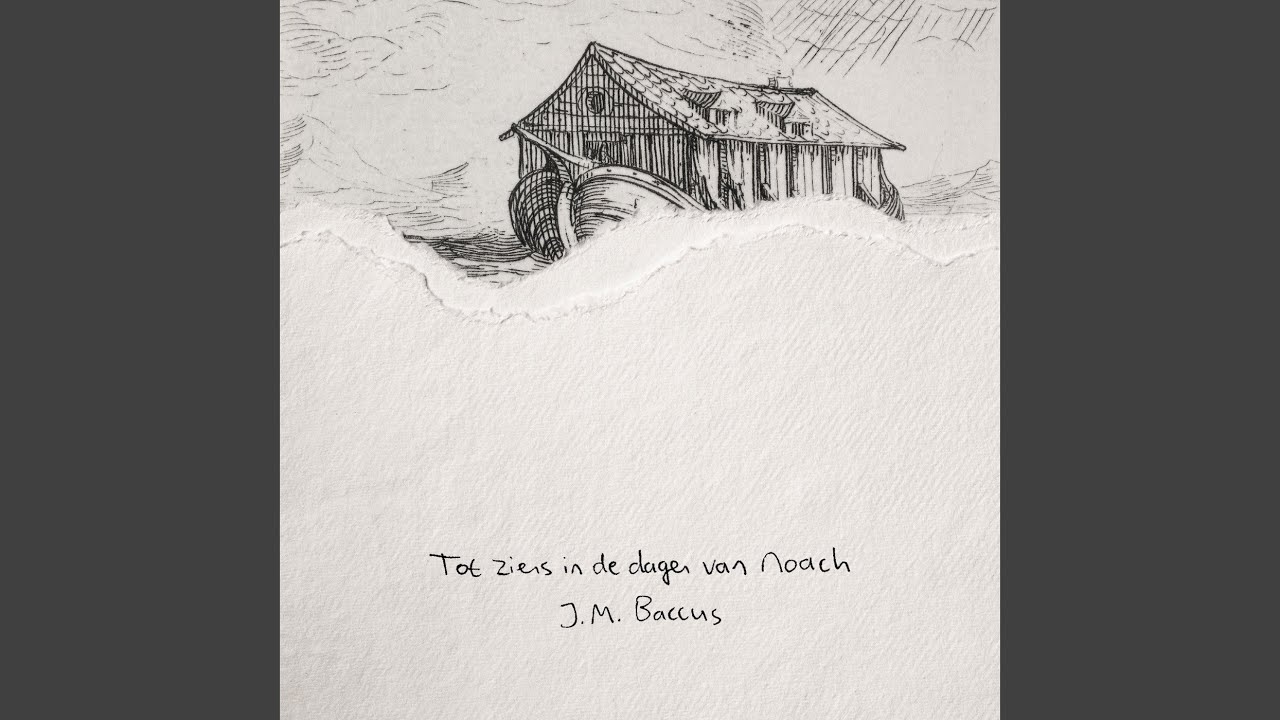 Tot ziens in de dagen van Noach
J.M. Baccus